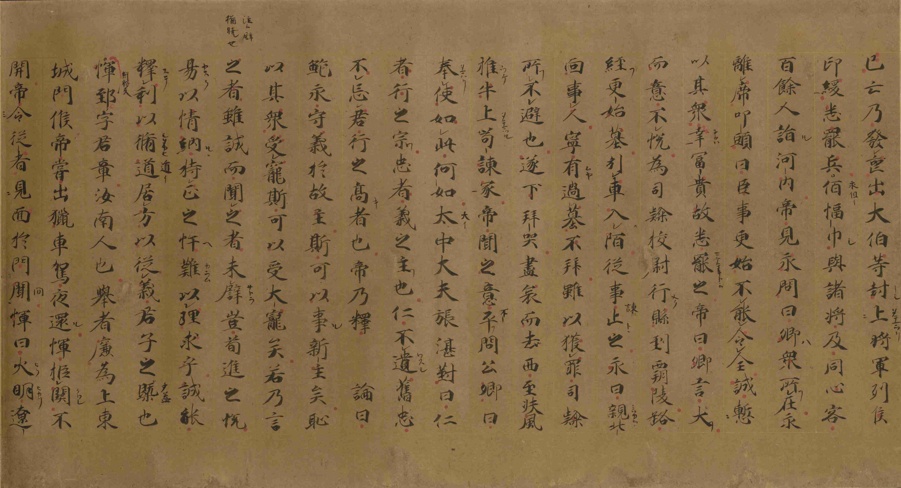 已亡乃發喪出大伯等封上將軍列侯
印綬悉罷兵佰幅巾與諸將及同心客
百餘人詣河内帝見永問曰卿衆所在永
離席叩頭曰臣事更始不能令全誠慙
以其衆幸冨貴故悉罷之帝曰卿言大
而意不悅為司隸校尉行縣到霸陵路
經更始墓引車入陌從事止之永曰親北
面事人寧有過墓不拜雖以獲罪司隸
所不避也遂下拜哭盡哀而去西至扶風
椎牛上苟諫冢帝聞之意不平問公卿曰
奉使如此何如太中大夫張湛對曰仁
者行之宗忠者義之主也仁不遺舊忠
不忘君行之高者也帝乃釋 論曰
鮑永守義於故主斯可以事新主矣恥
以其衆受寵斯可以受大寵矣若乃言
之者雖誠而聞之者未譬豈苟進之悅
易以情納持正之忤難以理求乎誠能
釋利以循道居方以從義君子之槩也
惲郅字君章汝南人也舉孝廉為上東
城門候帝嘗出獵車駕夜還惲拒關不
開帝令從者見面於門間惲曰火明遼